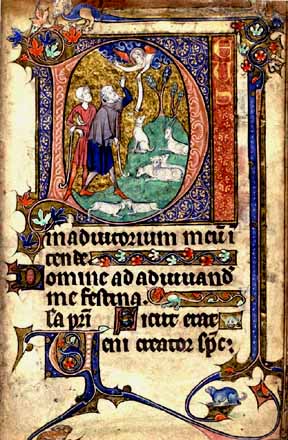 DEUS
in adiutorium meū i
tende
Domine ad adiuuand
me festina.
Gla pri Sicut erat
Veni creator spc: